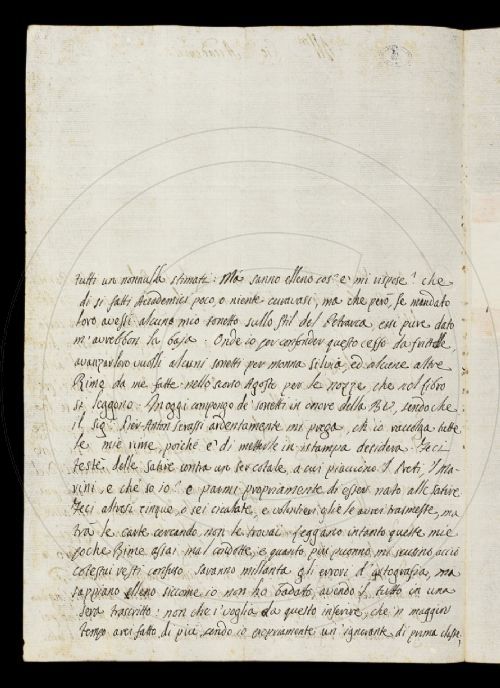 tutti un nonnulla stimati: Ma sanno elleno cos' è mi rispose? che
di sì fatti Accademici poco, o niente curavasi, ma che però, se mandato
loro avessi alcuno mio sonetto sullo stil del Petrarca, essi pure dato
m' avrebbon la baja. Onde io per confonder questo ceffo da frittelle,
avanzar loro vuolli alcuni sonetti per monna Silvia, ed alcune altre
Rime da me fatte nello scorso Agosto per le nozze che nel libro
si leggono. Inoggi compongo de' sonetti in onore della BV, sendo che
il sig. Pier Anton Serassi ardentemente mi prega, ch' io raccolga tutte
le mie rime, poichè e' di metterle in istampa desidera. Feci
teste delle satire contra un ser cotale, a cui piacciono i Preti, i Ma
rini, e che so io? e parmi propriamente di esser nato alle satire
Feci altresì cinque, o sei cicalate, e volentieri gliele avrei trasmesse, ma
trà le carte cercando non le trovai. Leggano intanto queste mie
poche Rime assai mal condotte, e quanto più puonno, mi scusino, acciò
cotestui resti confuso. Saranno millanta gli errori d' ortografia, ma
sappiano elleno siccome io non ho badato, avendo il tutto in una
sera trascritto: non che i' voglia da questo inferire, che 'n maggior
tempo arei fatto di più, sendo io propriamente un ignorante di prima classe,